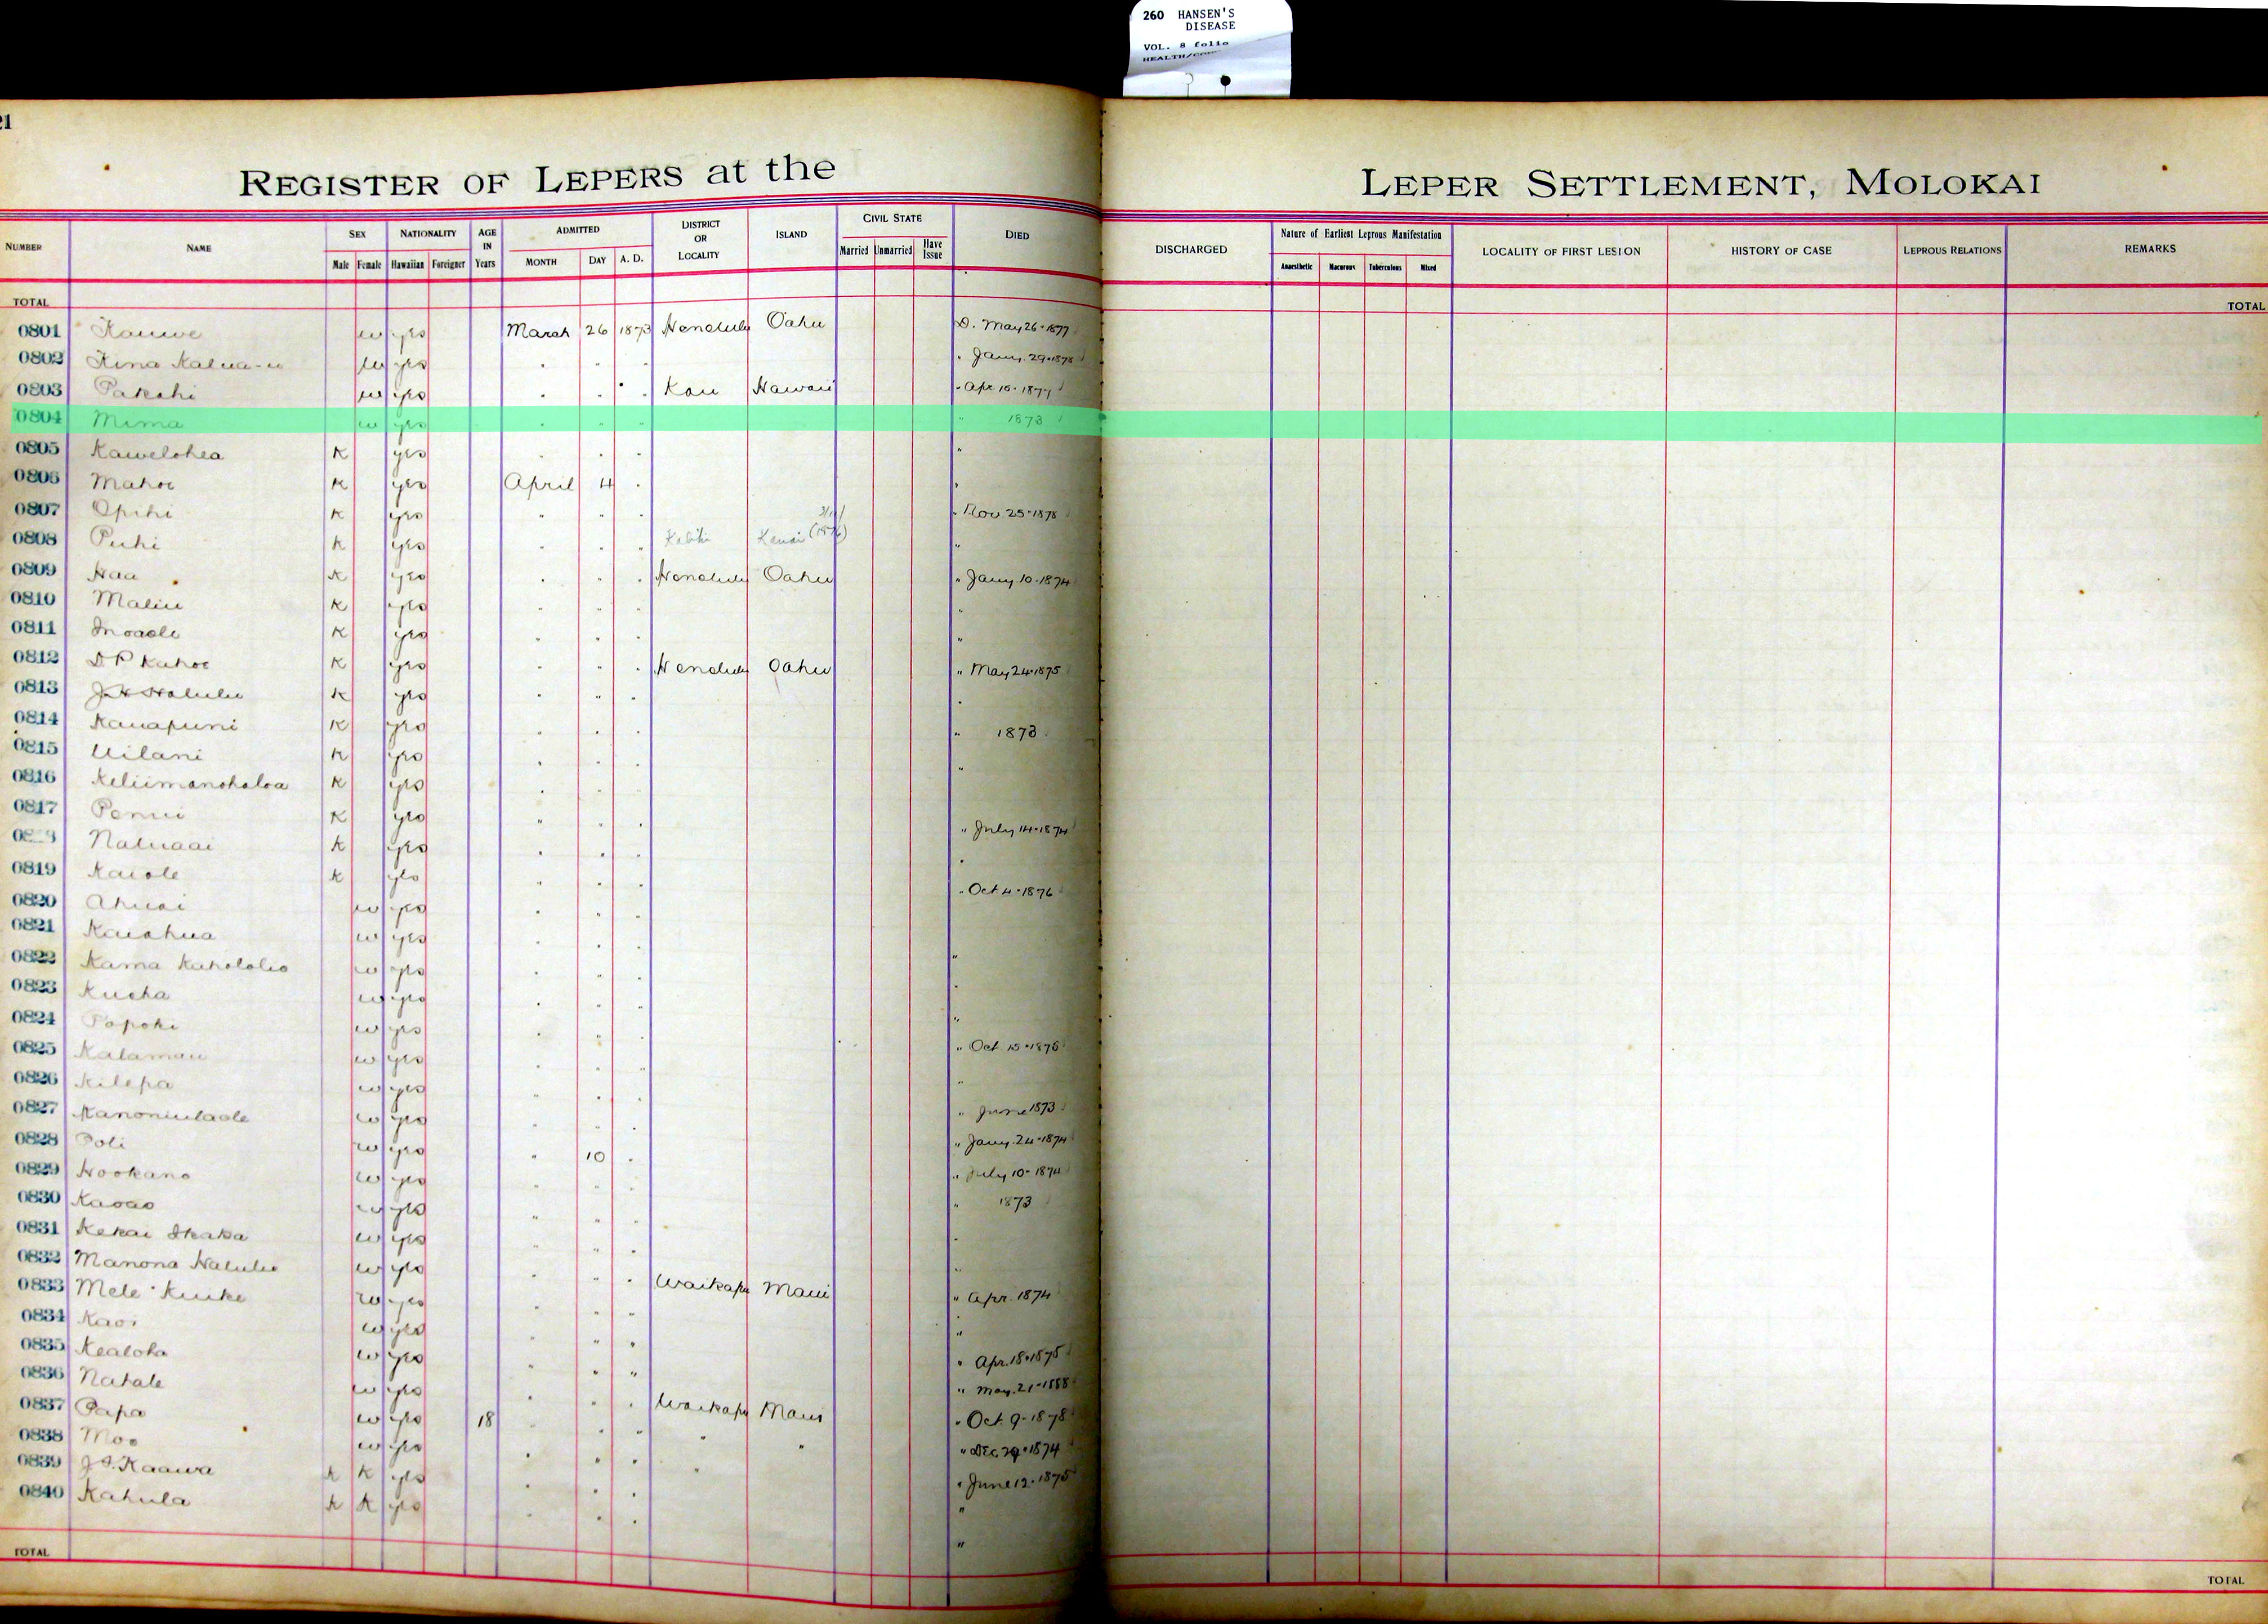 260 HANSEN'S
DISEASE
VOL. 8 folio
21
REGISTER OF LEPERS at the LEPER SETTLEMENT, MOLOKAI
NUMBER NAME SEX NATIONALITY AGE IN Years ADMITTED DISTRICT OR LOCALITY ISLAND CIVIL STATE DIED DISCHARGED Nature of Earliest Leprous Manifestation LOCALITY OF FIRST LESION HISTORY OF CASE LEPROUS RELATIONS REMARKS
Male Female Hawaiian Foreigner MONTH DAY A. D. Married Unmarried Have Issue Anaesthetic Macurous Tuberculous Mixed
TOTAL TOTAL
0801 Kauwe w yes March 26 1873 Honolulu Oahu D. May 26-1877
0802 Kina Kalua-u w yes " " " " Jany. 29-1878
0803 Pakahi w yes " " " Kau Hawaii " Apr 15-1877
0804 Mima w yes " " " " 1873
0805 Kawelohea K yes " " " "
0806 Mahoe K yes April 4 " "
0807 Opihi K yes " " " " Nov 25-1878
0808 Puhi K yes " " " Kauai "
0809 Haa K yes " " " Honolulu Oahu " Jany 10-1874
0810 Maliu K yes " " " "
0811 Inoaole K yes " " " "
0812 D P Kahoe K yes " " " Honolulu Oahu " May 24-1875
0813 J H Halulu K yes " " " "
0814 Kauapuni K yes " " " " 1873
0815 Uilani K yes " " " "
0816 Keliimanohaloa K yes " " "
0817 Penui K yes " " " " July 14-1874
Naluaai K yes " " " "
0819 Kaiole K yes " " " " Oct 4-1876
0820 Ahuai w yes " " "
0821 Kaiahua w yes " " " "
0822 Kama Kahololio w yes " " " "
0823 Kueha w yes " " " "
0824 Popoki w yes " " " " Oct. 15-1878
0825 Kalamau w yes " " " "
0826 Kilepa w yes " " " " June 1873
0827 Kanoniulaole w yes " " " " Jany. 24-1874
0828 Poli w yes " 10 " " July 10-1874
0829 Hookano w yes " " " " 1873
0830 Kaoao w yes " " " "
0831 Kekai Ikaka w yes " " " "
0832 Manona Halulu w yes " " " Waikapu Maui " Apr. 1874
0833 Mele Kuike w yes " " " "
0834 Kaoi w yes " " " " Apr. 18-1875
0835 Kealoha w yes " " " " May. 21-1888
0836 Nakale w yes " " " Waikapu Maui " Oct. 9-1878
0837 Papa w yes 18 " " " " " " Dec. 29-1874
0838 Moo w yes " " " " " June 12-1875
0839 J S. Kaawa K K yes " " " "
0840 Kahula K K yes " " " "
TOTAL TOTAL